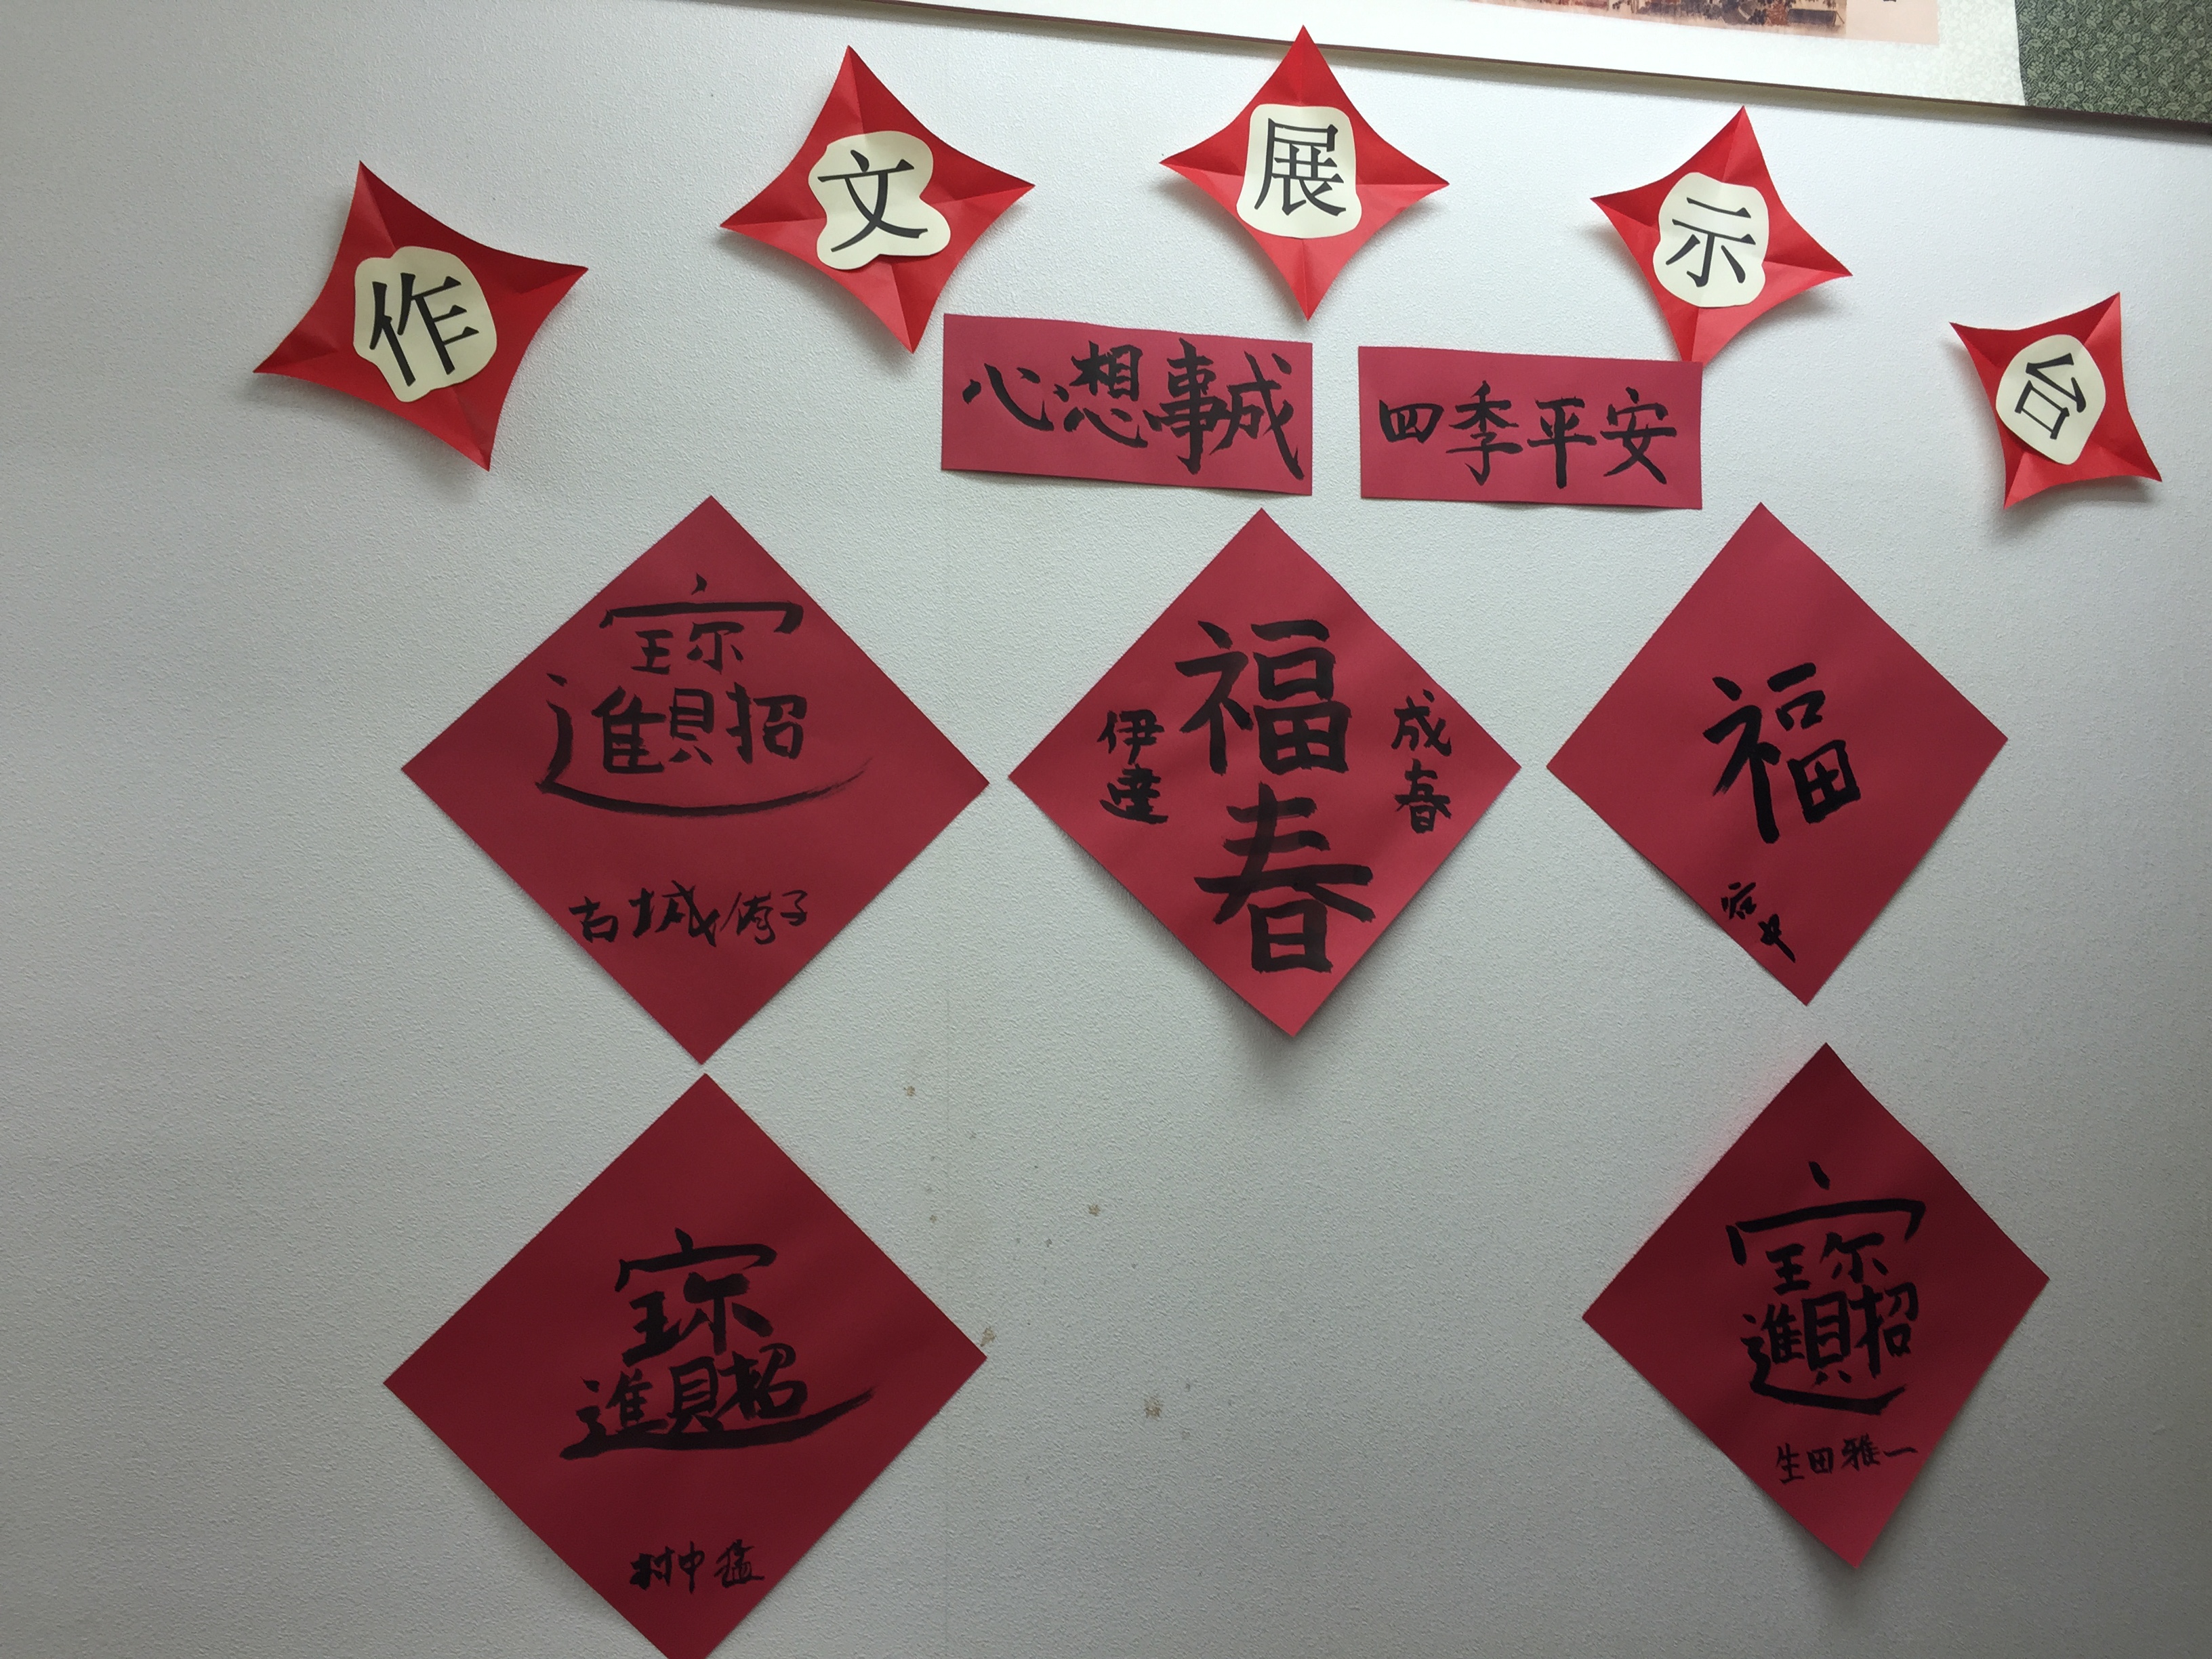 作文展示台
心想事成
四季平安
招財進寳
古城侑子
福春
伊達
成春
福
招財進寳
村中猛
招財進寳
生田雅一